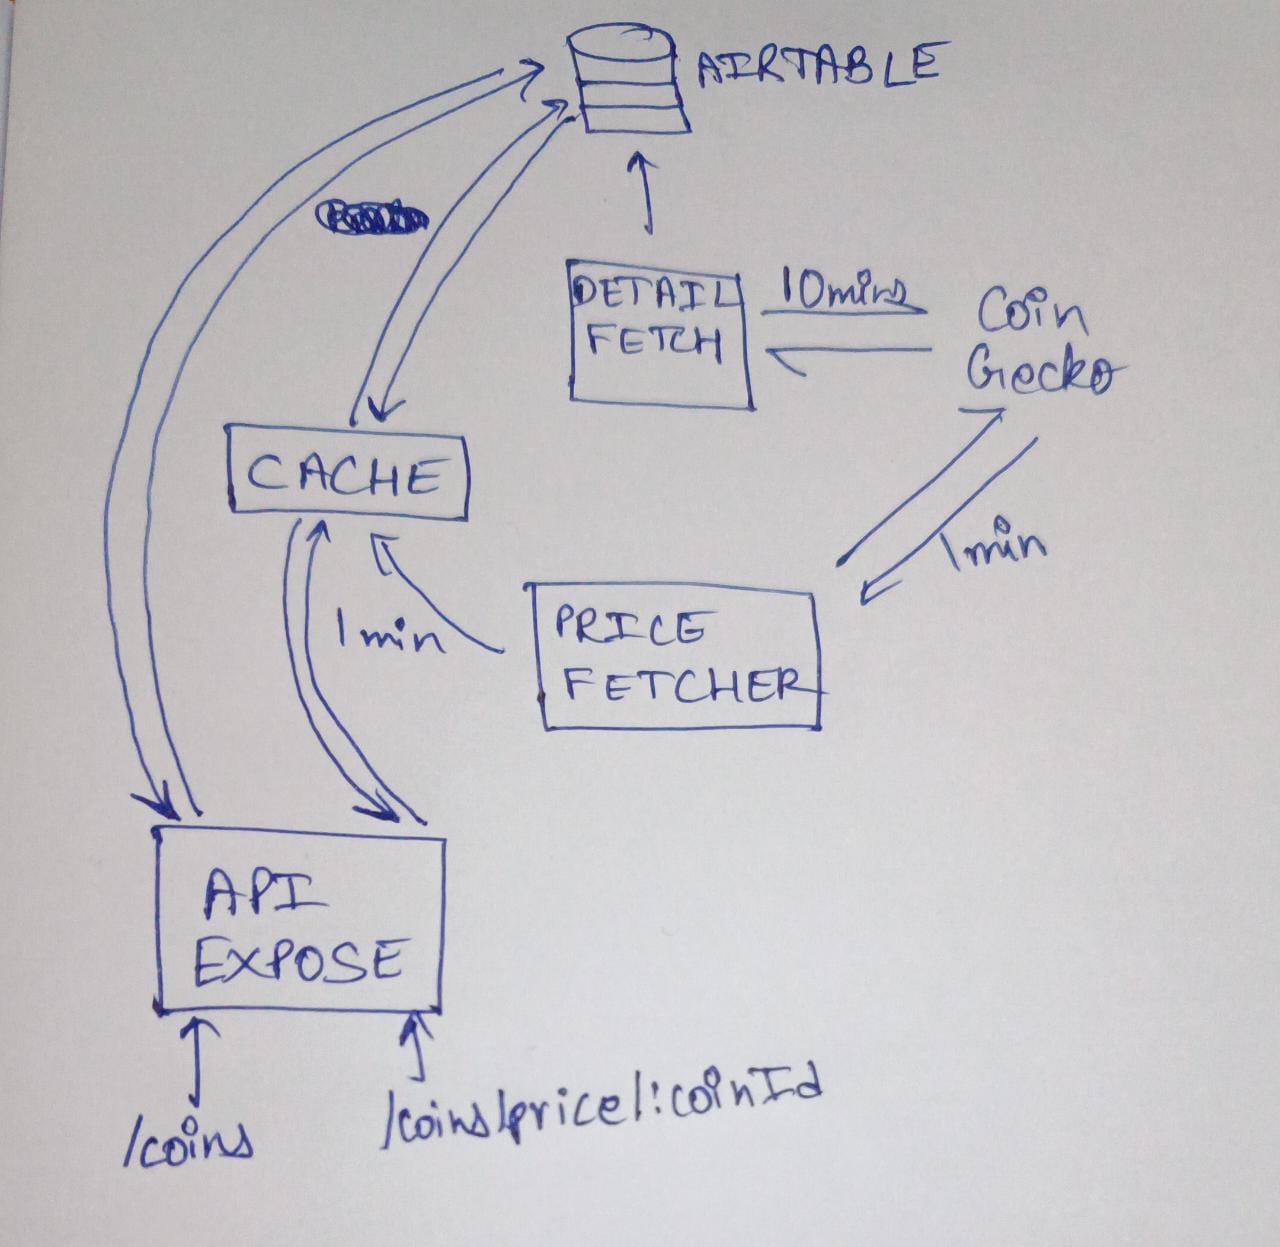 AIRTABLE
DETAIL
FETCH
10mins
Coin
Gecko
CACHE
1min
1min
PRICE
FETCHER
API
EXPOSE
/coins
/coins/price/:coinId